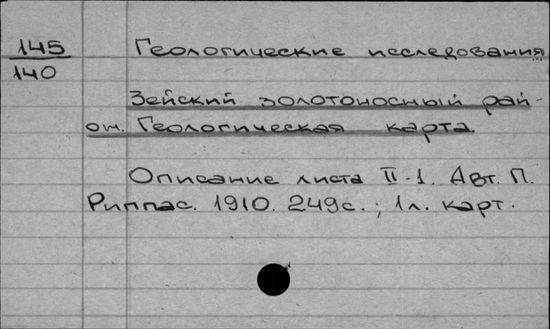 145 Геологические исследования
140
Зейский золотоносный рай-
он. Геологическая карта.
Описание листа II-1. Авт. П.
Риппас. 1910. 249с.; 1л. карт.